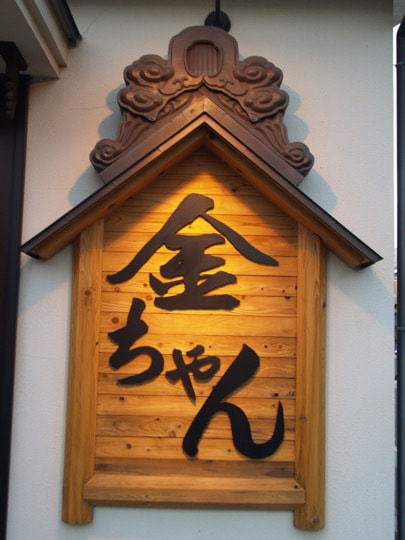 金
ちゃん